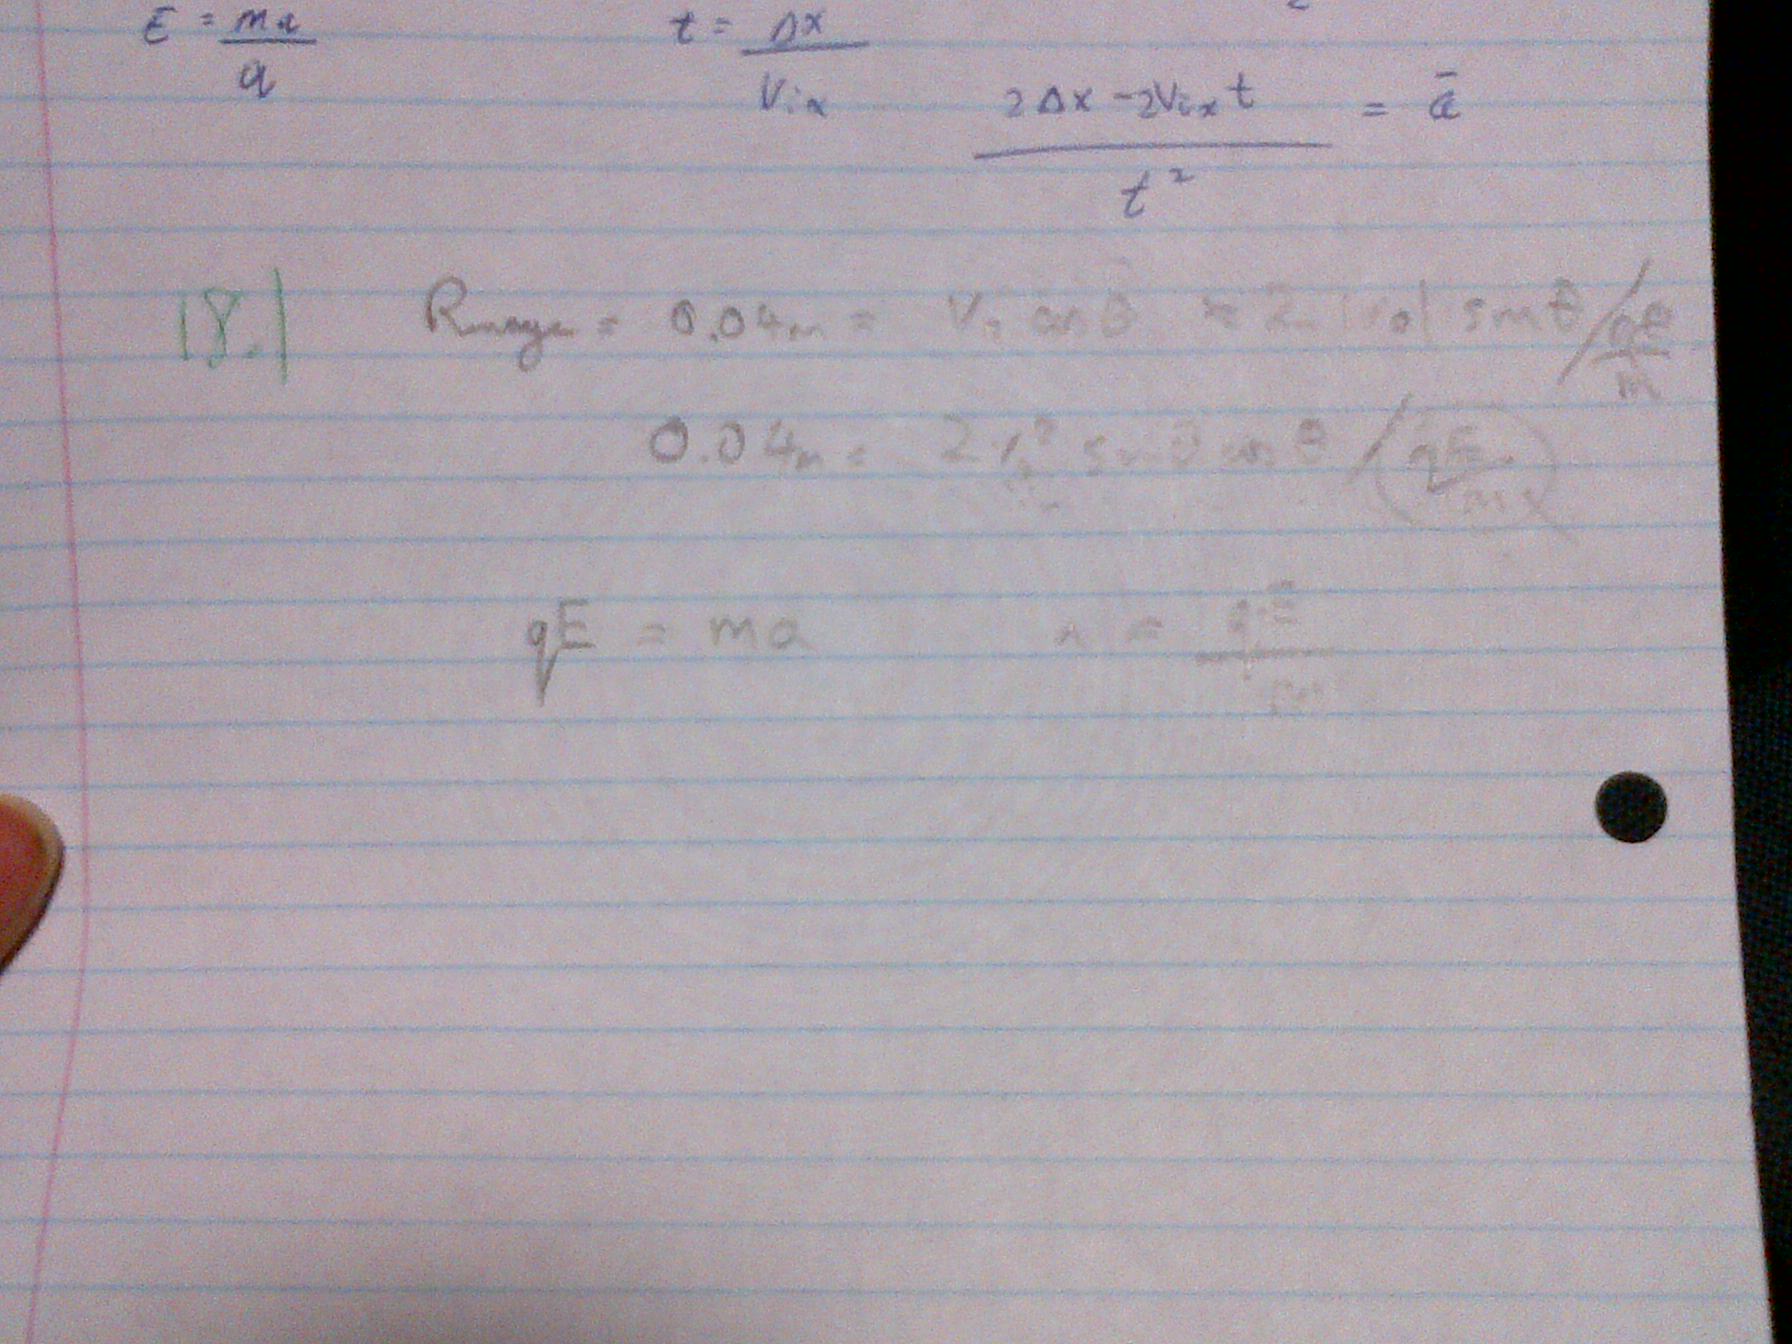 E = ma / q    t = Δx / Vix
2Δx - 2Vix t / t² = a̅
18.) Range = 0.04m = V₀ cos θ × 2 |V₀| sin θ / qE / m
0.04m = 2 V₀² sin θ cos θ / (qE / m)
qE = ma    a = qE / m